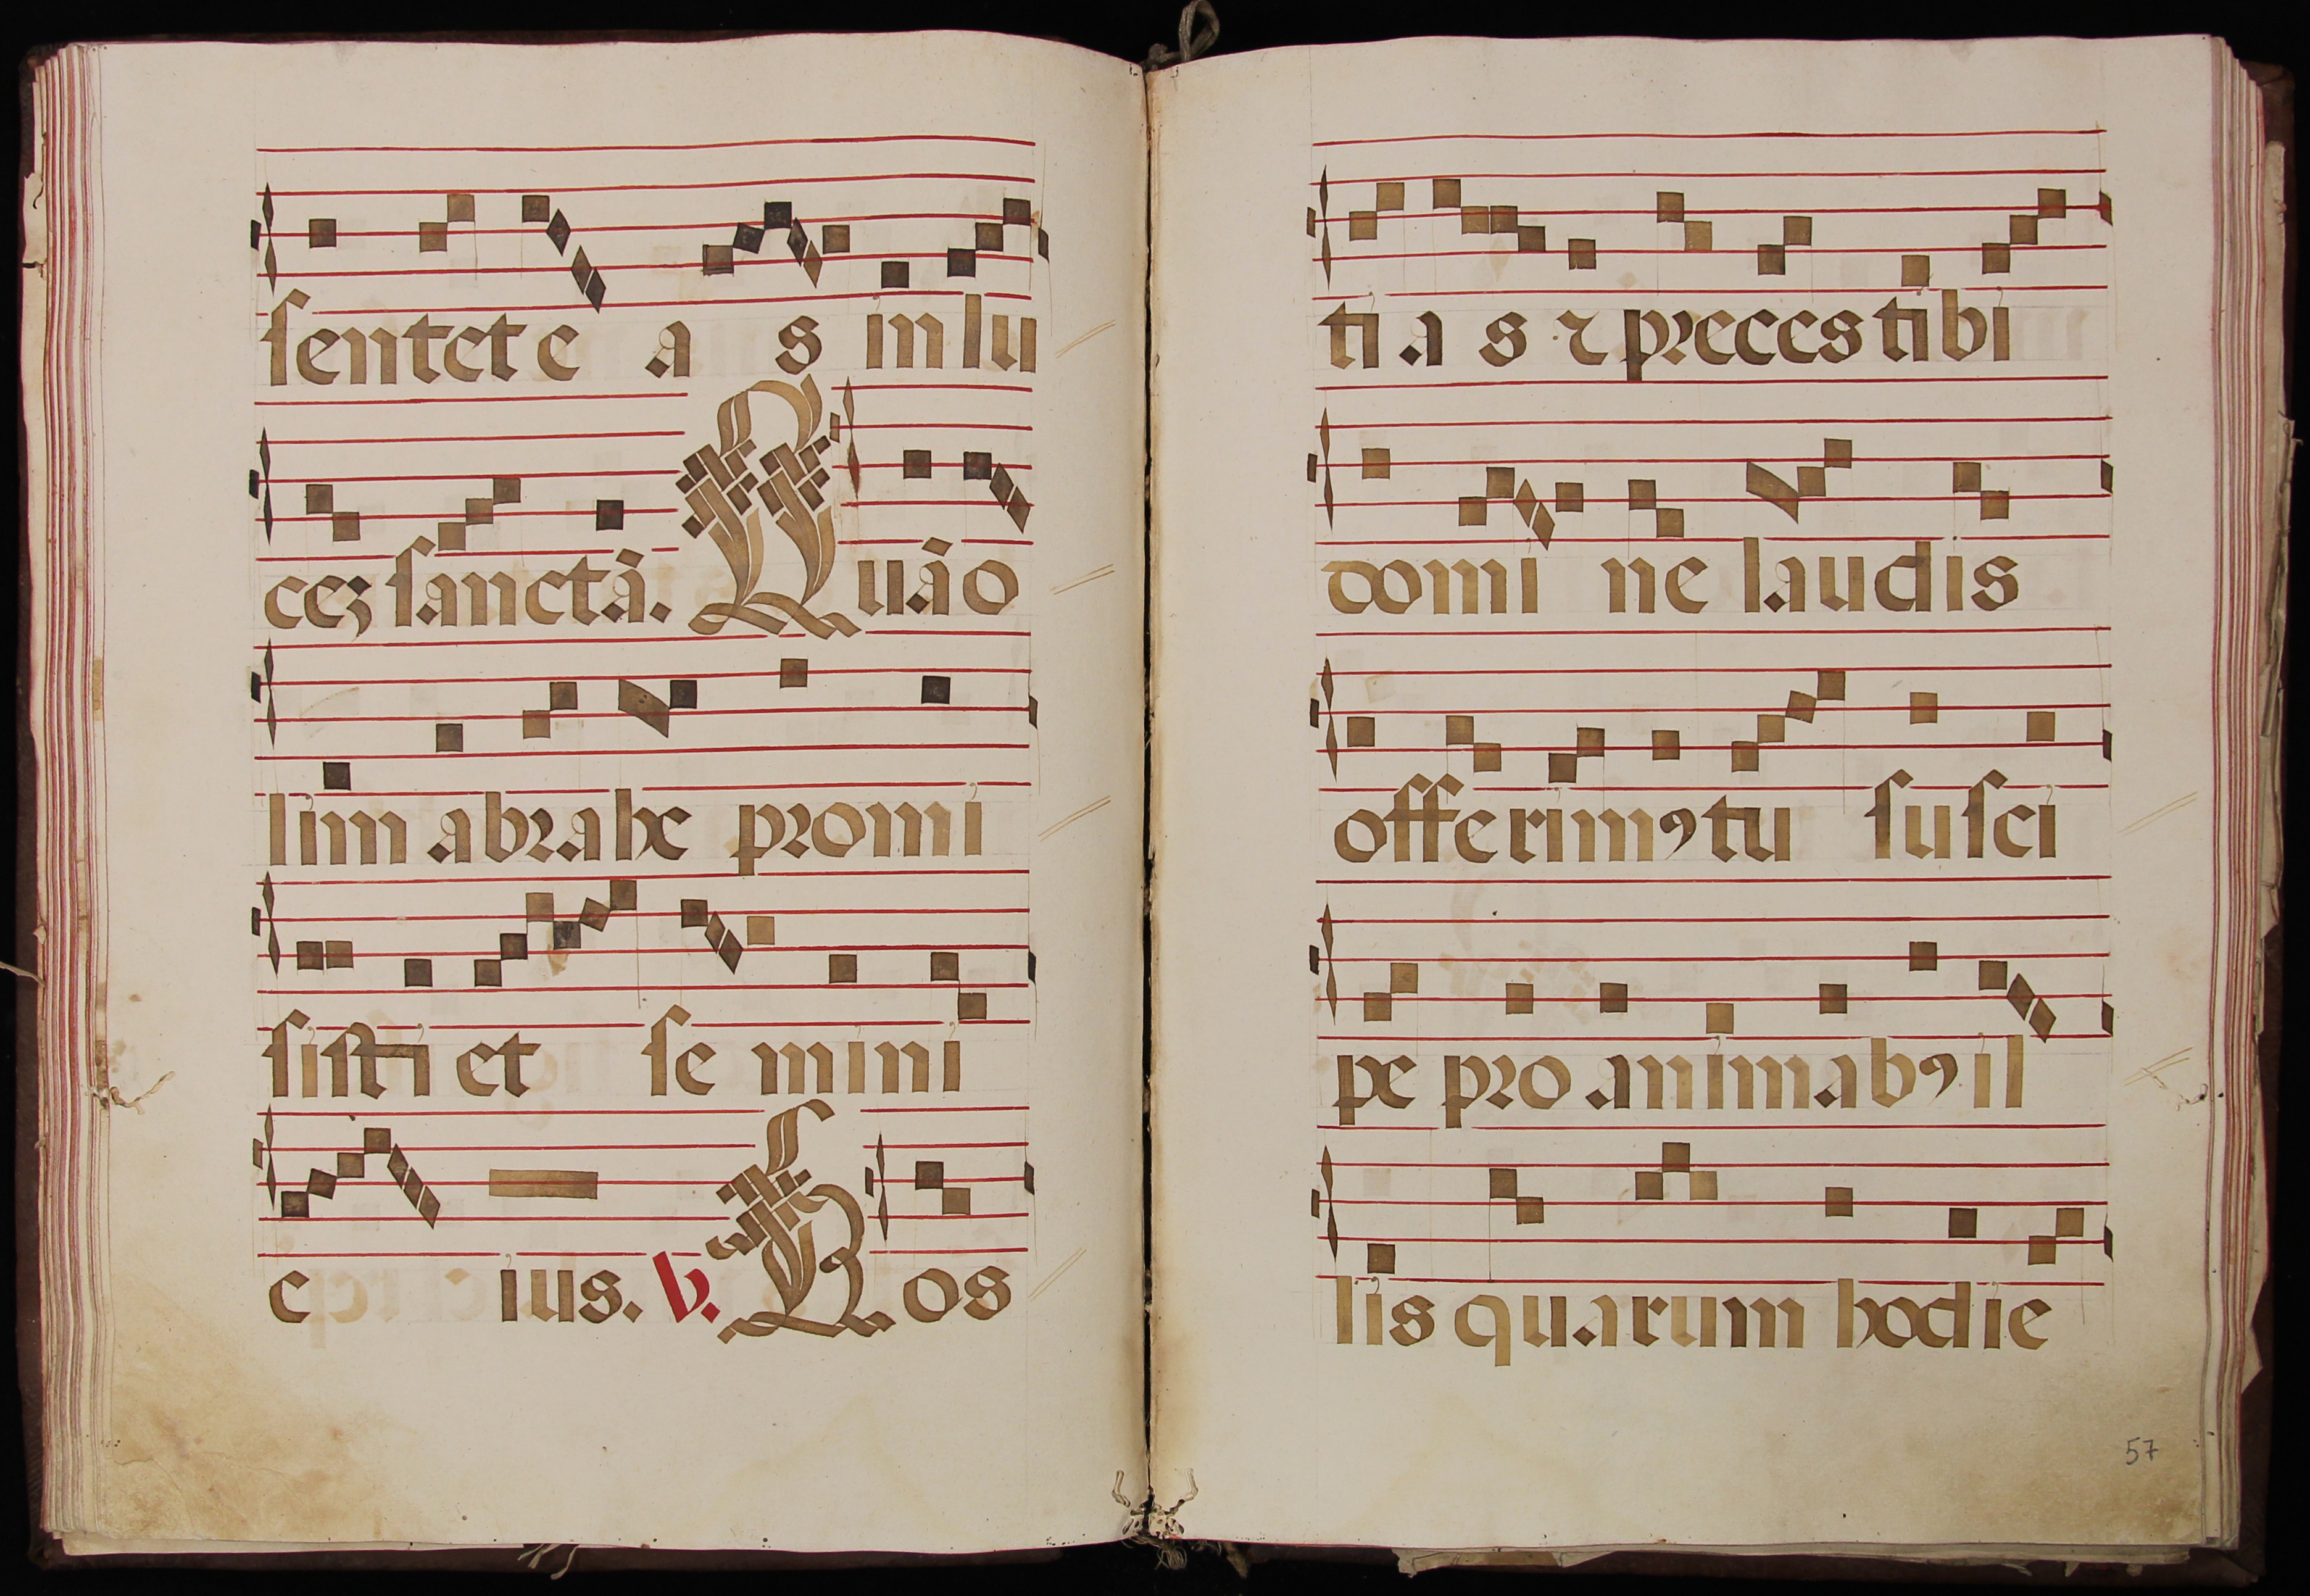 sentet e a s in lu
ceʒ sanctā. Quā o
lim abrahe promi
sisti et se mini
e ius. V. Hos
ti a s ⁊ preces tibi
domi ne laudis
offerimꝰ tu susci
pe pro animabꝰ il
lis quarum hodie
57